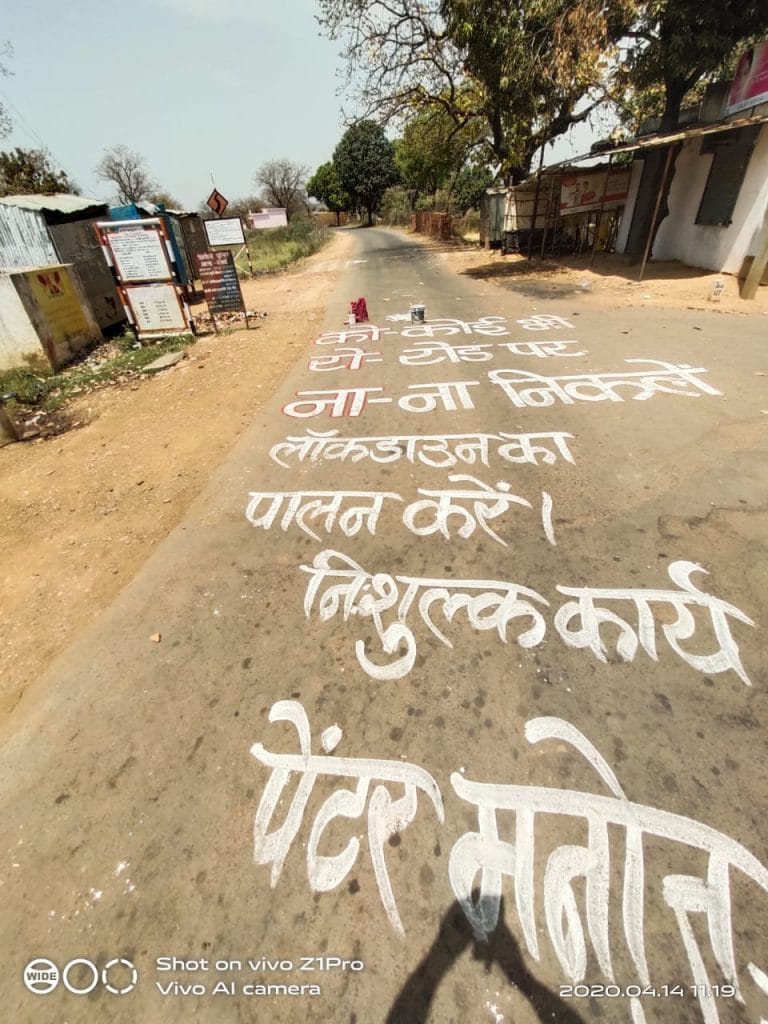 को- कोई भी
रो- रोड पर
ना- ना निकलें
लॉकडाउन का
पालन करें।
निःशुल्क कार्य
पेंटर मनोज
WIDE
Shot on vivo Z1Pro
Vivo AI camera
2020.04.14 11:19